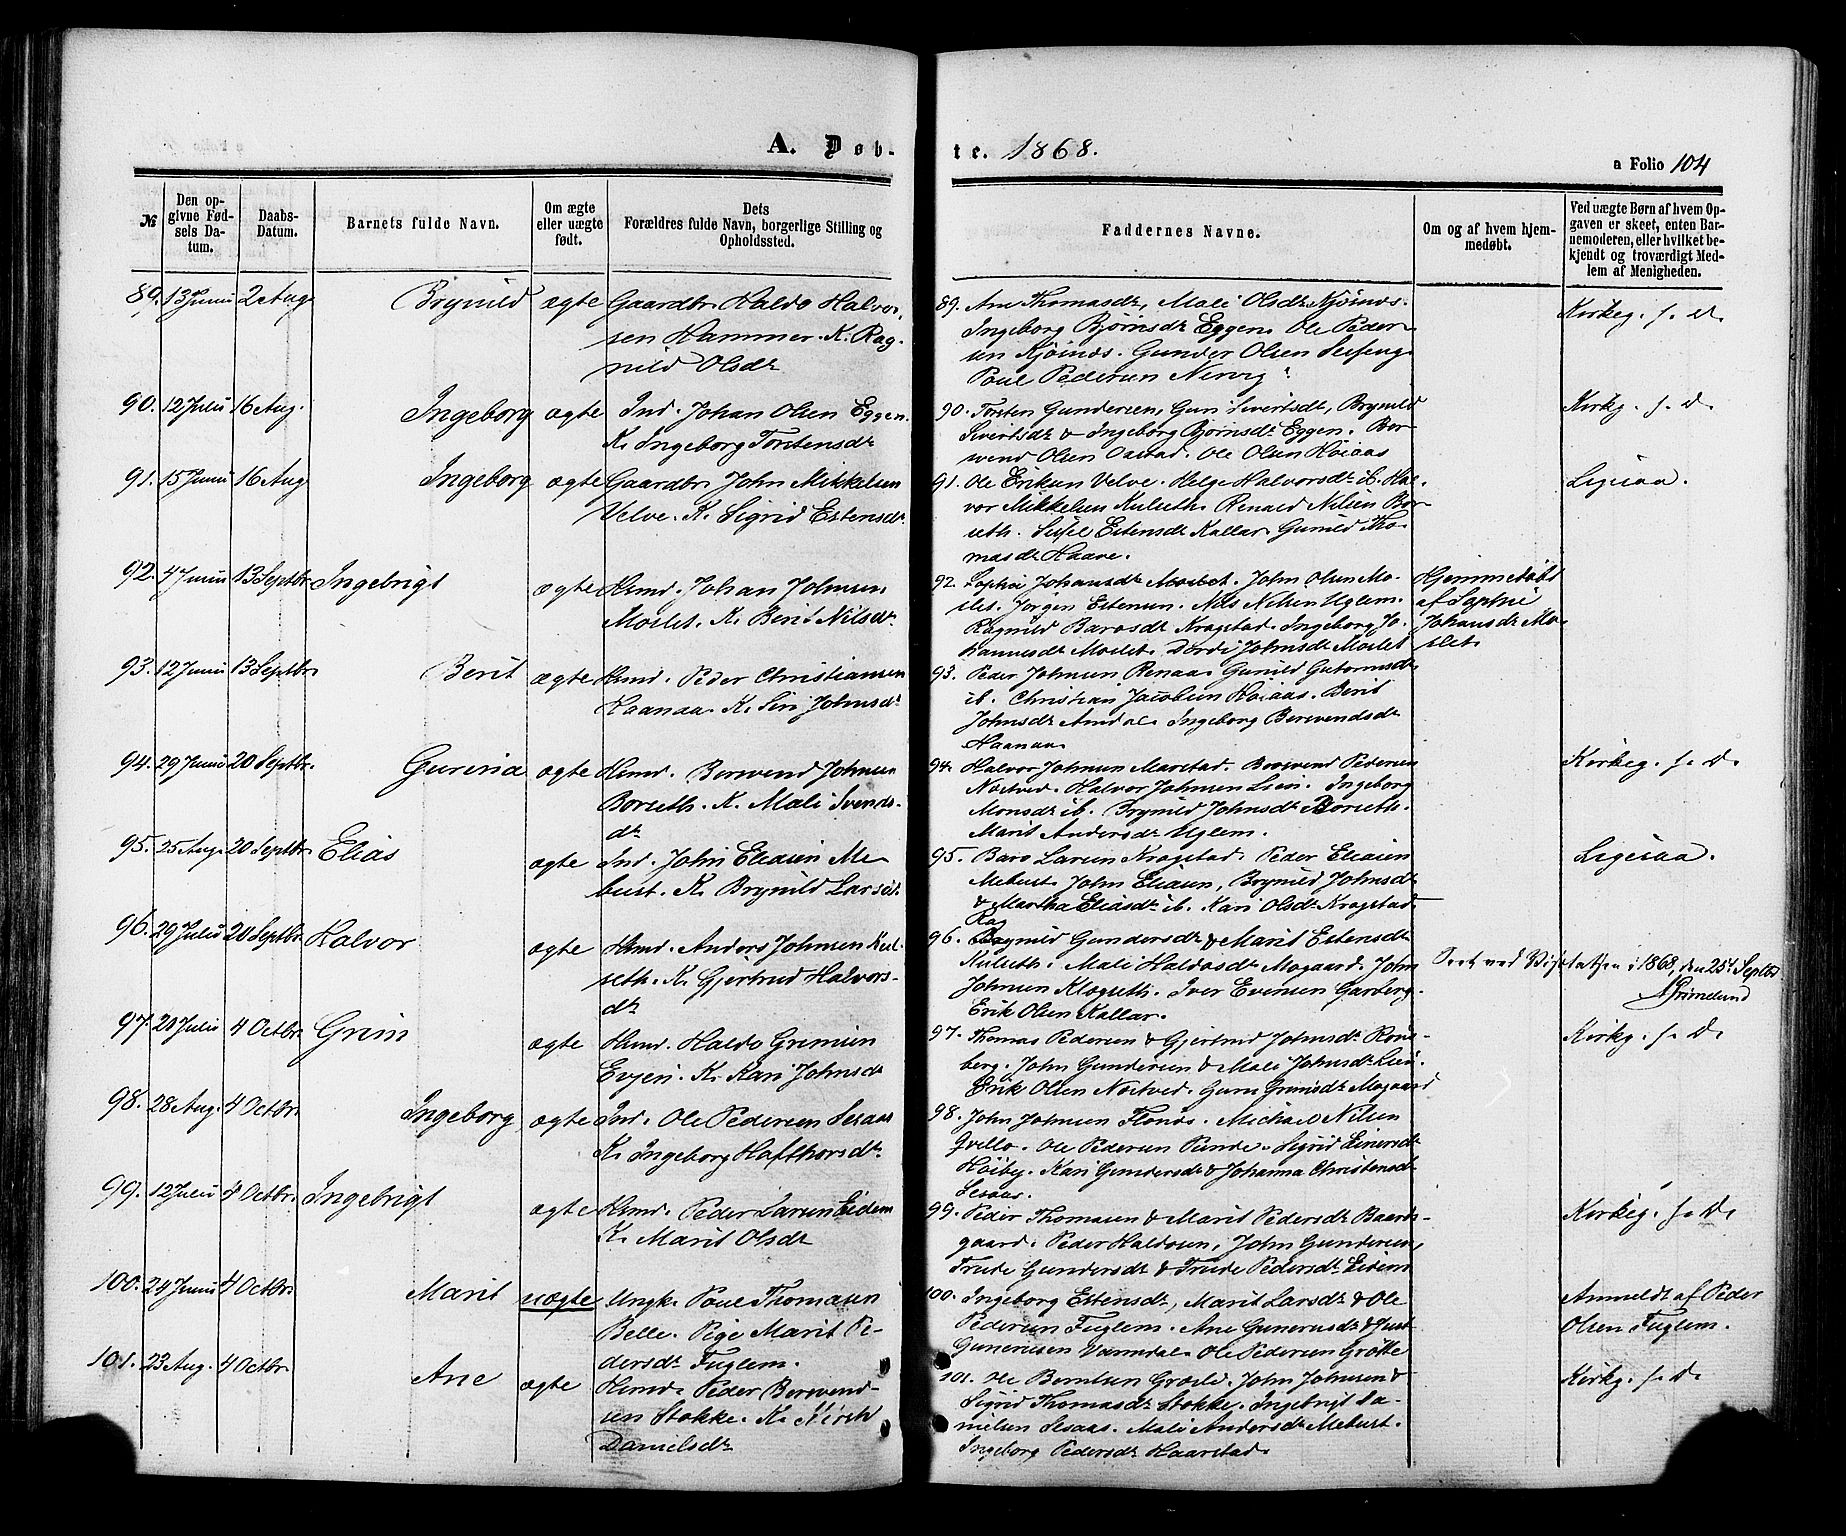 A. Døb-
te. 1868.
a Folio 104
№
Den op-
givne Fød-
sels Da-
tum.
Daabs-
Datum.
Barnets fulde Navn.
Om ægte
eller uægte
født.
Dets
Forældres fulde Navn, borgerlige Stilling og
Opholdssted.
Faddernes Navne.
Om og af hvem hjem-
medøbt.
Ved uægte Børn af hvem Op-
gaven er skeet, enten Bar-
nemoderen, eller hvilket be-
kjendt og troværdigt Med-
lem af Menigheden.
89. 13 Juni 2 Aug Brynild ægte Gaardbr. Haldo Halvor-
sen Hammer. K. Rag-
nild Olsdr
89. Ane Thomasdr, Mali Olsdr
Ingeborg Bjørnsdr Eggen. Ole Peder-
sen Gunder Olsen
Poul Pedersen Nervig
Kirkeg. f. D.
90. 12 Juli 16 Aug. Ingeborg ægte Ind. Johan Olsen Eggen.
K. Ingeborg Torstensdr
90. Torsten Gundersen, Guri Sivertsdr, Brynild
Sivertsdr & Ingeborg Bjørnsdr Eggen. Ber-
wend Olsen Ole Olsen Høiaas
Kirkg. f. D.
91. 15 Juni 16 Aug Ingeborg ægte Gaardbr. John Mikkelsen
Velve. K. Sigrid Estensdr.
91. Ole Eriksen Velve. Helge Halvorsdr ib. Hal-
vor Mikkelsen Kulseth. Renald Nilsen Bor-
seth. Estensdr Kallar. Gunild Tho-
masdr Haave.
Ligesaa.
92. 4 Juni 13 Septbr. Ingebrigt ægte Hsmd. Johan Johnsen
Moslet. K. Berit Nilsdr.
92. Sophie Johansdr Moslet. John Olsen Mo-
slet. Jørgen Estensen. Nils Nilsen Uglem.
Ragnild Barosdr Kragstad. Ingeborg Jo-
hannesdr Moslet. Dordi Johnsdr Moslet
Hjemmedøbt
af Sophie
Johansdr Mo-
slet.
93. 12 Juni 13 Septbr. Berit ægte Hsmd. Peder Christiansen
Haanaa. K. Siri Johnsdr
93. Peder Johnsen Renaa. Gunild Gutormsdr
ib. Christian Jacobsen Høiaas. Berit
Johnsdr Amdal. Ingeborg Berevendsdr
Haanaa
94. 29 Juni 20 Septbr. Gurina ægte Hsmd. Berevend Johnsen
Borseth. K. Mali Svends-
dr
94. Halvor Johnsen Marstad. Berevend Pedersen
Nostved. Halvor Johnsen Lien. Ingeborg
Monsdr ib. Brynild Johnsdr Borseth.
Marit Andersdr Uglem.
Kirkeg. f. D.
95. 25 Aug. 20 Septbr. Elias ægte Ind. John Eliasen Me-
bust. K. Brynild Larsdr.
95. Baro Larsen Kragstad. Peder Eliasen
Mebust. John Eliasen, Brynild Johnsdr
& Martha Eliasdr ib. Kari Olsdr Kragstad.
Ligesaa.
96. 29 Juli 20 Septbr. Halvor ægte Hsmd. Anders Johnsen Kul-
seth. K. Gjertrud Halvors-
dr
Rag
96. Bragnild Gundersdr & Marit Estensdr
Kulseth. Mali Haldosdr Mogaard. John
Johnsen Klegseth. Iver Evensen Garberg.
Erik Olsen Kallar.
Seet ved Visitatsen i 1868, den 25. Septbr
Grimelund
97. 20 Juli 4 Octbr. Grim ægte Hsmd. Haldo Grimsen
Evjen. K. Kari Johnsdr
97. Thomas Pedersen & Gjertrud Johnsdr Røns-
berg. John Gundersen & Mali Johnsdr Lien.
Erik Olsen Nostved. Guru Grimsdr Mogaard
Kirkg. f. D.
98. 28 Aug. 4 Octbr. Ingeborg ægte Ind. Ole Pedersen Sesaas
K. Ingeborg Hafthorsdr.
98. John Johnsen Flonæs. Michael Nilsen
Qvello. Ole Pedersen Punde. Sigrid Einersdr
Høiby. Kari Gundersdr & Johanna Christensdr
Sesaas.
99. 12 Juli 4 Octbr. Ingebrigt ægte Hsmd. Peder Larsen Eidem
K. Marit Olsdr
99. Peder Thomasen & Marit Pedersdr Baards-
gaard. Peder Haldosen, John Gundersen,
Trude Gundersdr & Trude Pedersdr Eidem
Kirkeg. f. D.
100. 24 Juni 4 Octbr. Marit uægte Ungk. Poul Thomasen
Belle. Pige Marit Pe-
dersdr Fuglem.
100. Ingeborg Estensdr, Marit Larsdr & Ole
Pedersen Fuglem. Ane Gunerusdr & Just
Gunerusen Varmdal. Ole Pedersen Grøtte
Anmeldt af Peder
Olsen Fuglem.
101. 23 Aug. 4 Octbr. Ane ægte Hsmd. Peder Berevend-
sen Stokke. K. Kirsti
Danielsdr
101. Ole Berntsen John Johnsen &
Sigrid Thomasdr Stokke. Ingebrigt Da-
nielsen Sesaas. Mali Andersdr Mebust.
Ingeborg Pedersdr Haarstad.
Kirkg. f. D.